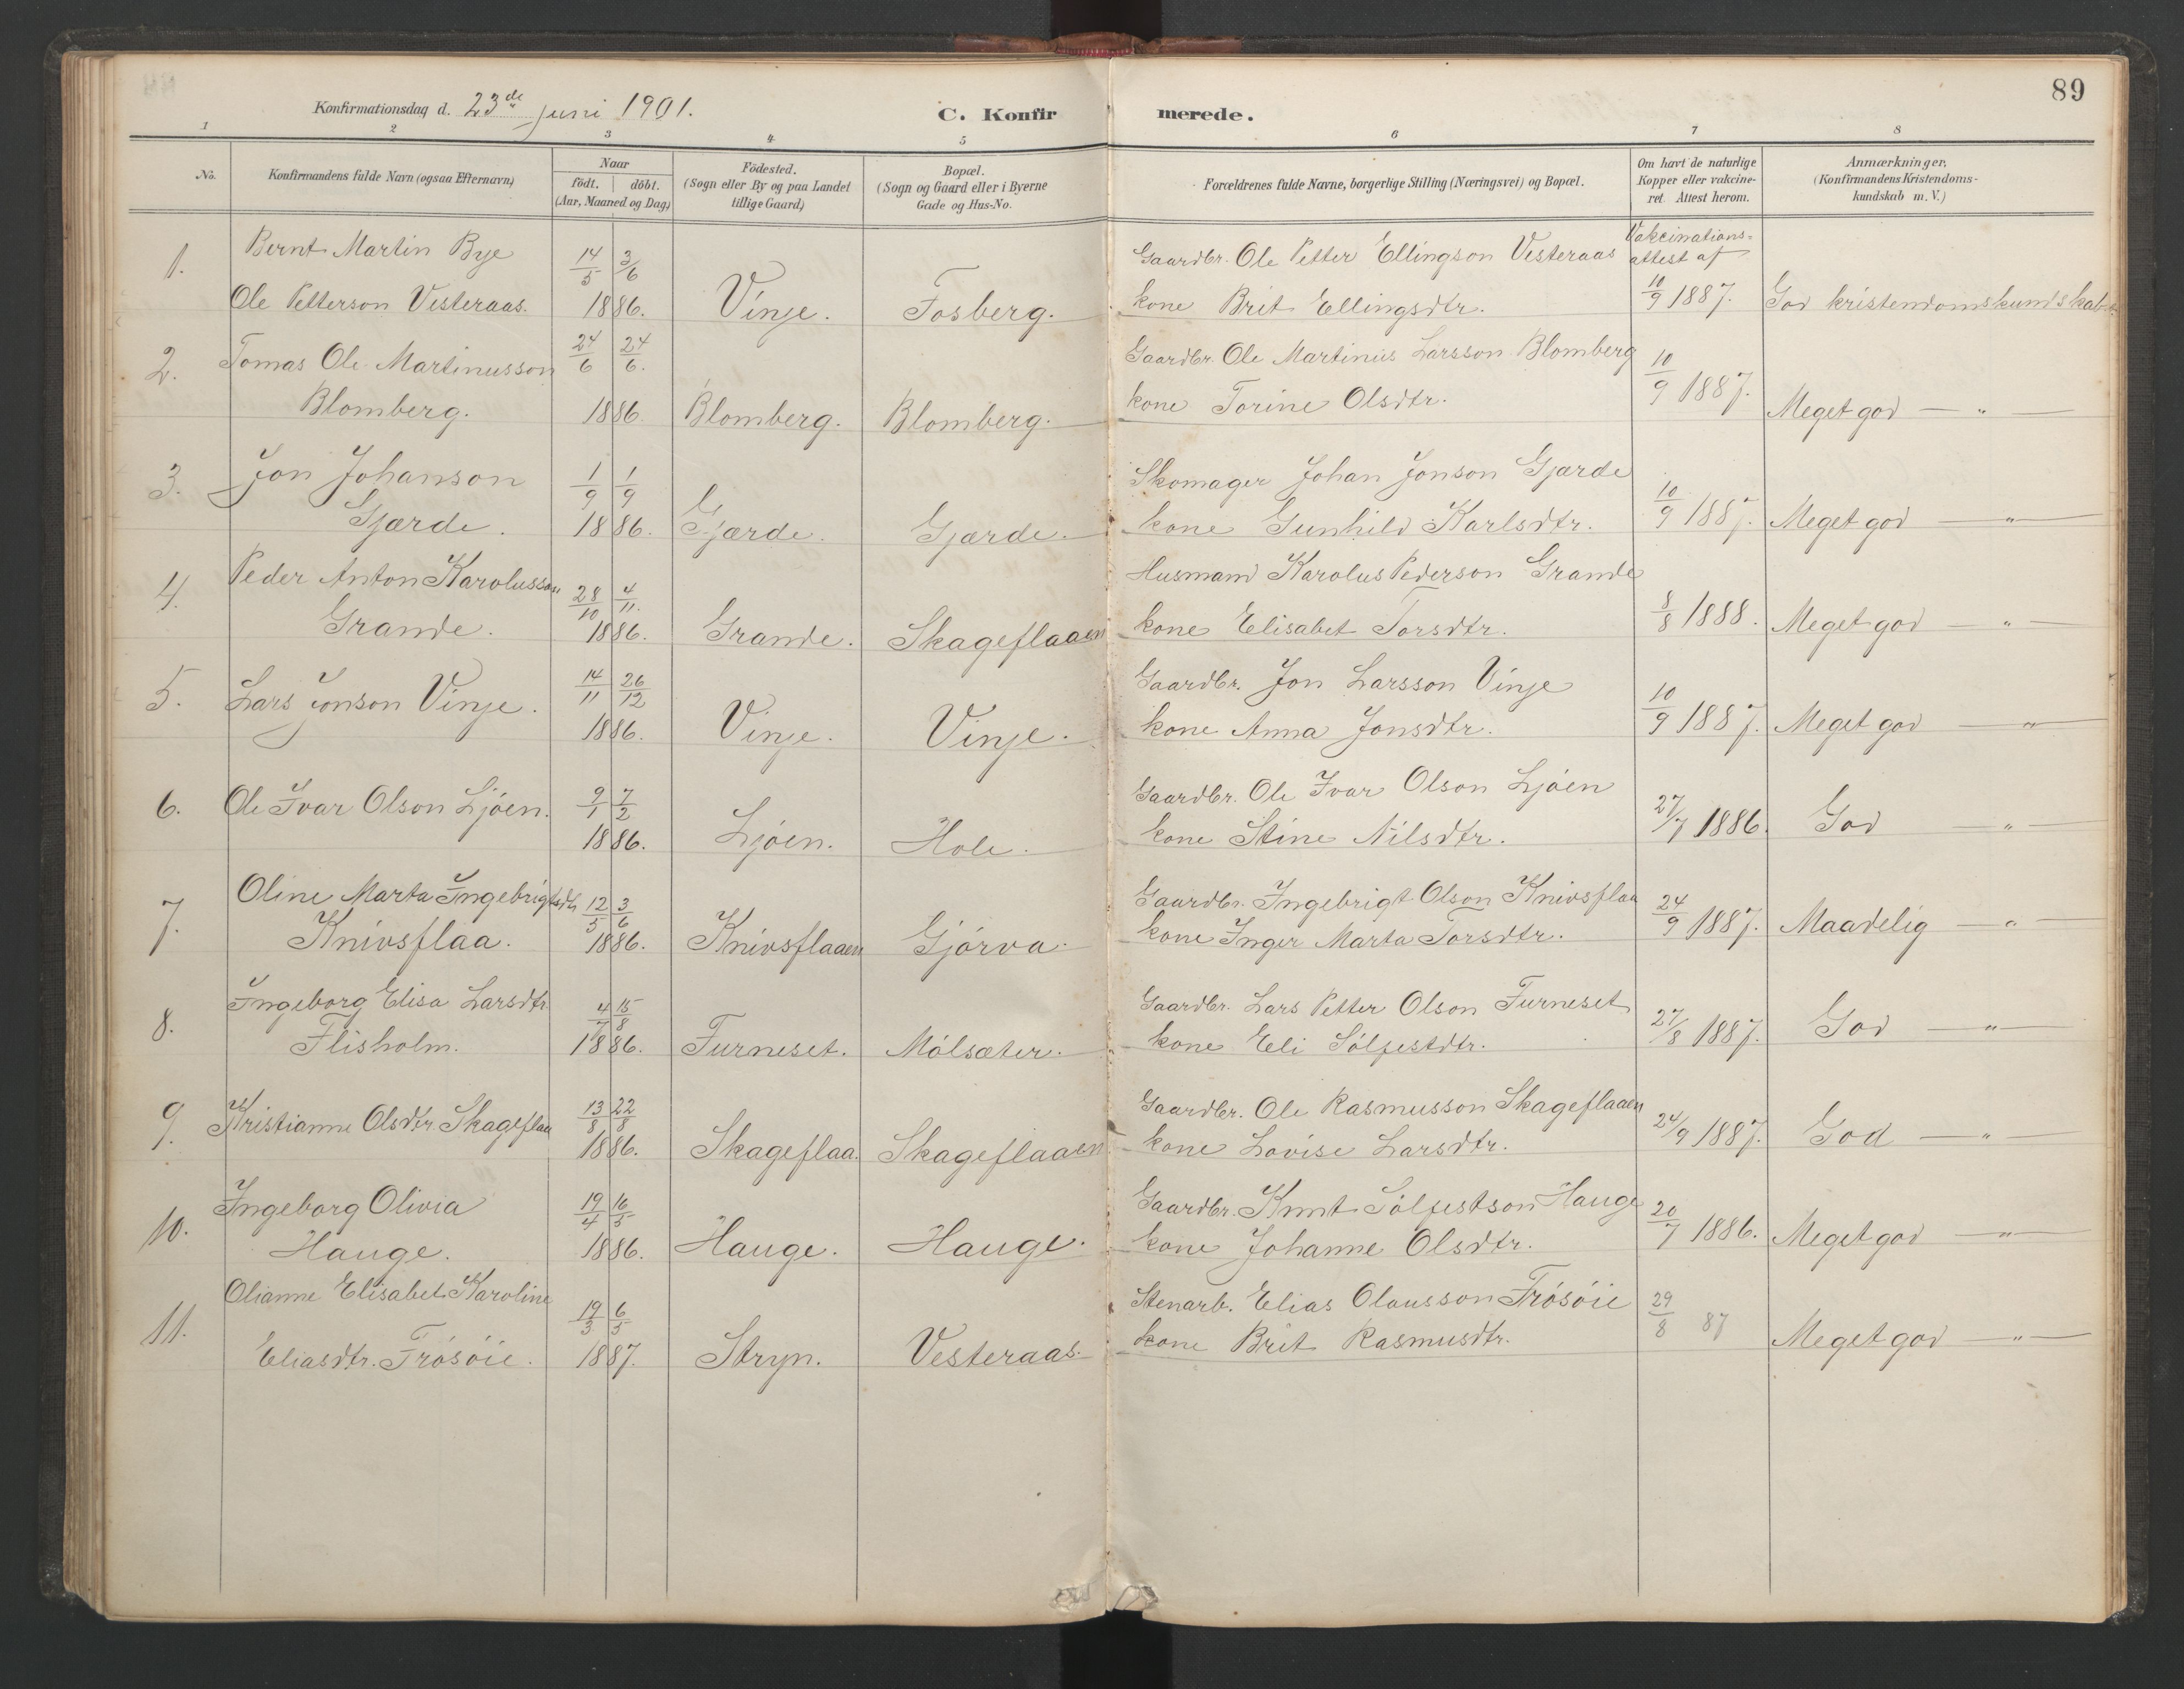 89
Konfirmationsdag d. 23de juni 1901. C. Konfirmerede.
1 2 3 4 5 6 7 8
No.
Konfirmandens fulde Navn (ogsaa Efternavn)
Naar
födt. döbt.
(Aar, Maaned og Dag)
Födested.
(Sogn eller By og paa Landet
tillige Gaard)
Bopæl.
(Sogn og Gaard eller i Byerne
Gade og Hus-No.
Forældrenes fulde Navne, borgerlige Stilling (Næringsvei) og Bopæl.
Om havt de naturlige
Kopper eller vakcine-
ret. Attest herom.
Anmærkninger.
(Konfirmandens Kristendoms-
kundskab m. V.)
1. Bernt Martin Bye 14/5 3/6 Gaardbr. Ole Petter Ellingson Vesteraas Vakcinations=
attest af
Ole Petterson Vesteraas. 1886. Vinje. Fosberg. kone Brit Ellingsdtr. 10/9 1887. God kristendomskundskab
2. Tomas Ole Martinusson 24/6 24/6. Gaardbr. Ole Martinus Larsson Blomberg 10/9 1887.
Blomberg. 1886 Blomberg. Blomberg. kone Torine Olsdtr. Meget god — „ —
3. Jon Johanson 1/9 1/9 Skomager Johan Jonson Gjærde
Gjærde. 1886. Gjærde. Gjærde. kone Gunhild Karlsdtr. 10/9 1887. Meget god — „ —
4. Peder Anton Karolusson 28/10 4/11. Husmand Karolus Pederson Grande
Grande. 1886. Grande. Skageflaaen kone Elisabet Torsdtr. 8/8 1888. Meget god — „ —
5. Lars Jonson Vinje. 14/11 26/12 Gaardbr. Jon Larsson Vinje
1886. Vinje. Vinje. kone Anna Jonsdtr. 10/9 1887. Meget god — „ —
6. Ole Ivar Olson Ljöen. 9/1 7/2 Gaardbr. Ole Ivar Olson Ljöen
1886. Ljöen. Hole. kone Stine Nilsdtr. 27/7 1886. God „ —
7. Oline Marta Ingebrigtsdtr 12/5 3/6 Gaardbr. Ingebrigt Olson Knivsflaa
Knivsflaa. 1886. Knivsflaaen Gjörva. kone Inger Marta Torsdtr. 24/9 1887. Maadelig — „ —
8. Ingeborg Elisa Larsdtr. 4/7 15/8 Gaardbr. Lars Petter Olson Furneset
Flisholm. 1886. Furneset. Mölsæter. kone Eli Sölfestdtr. 27/8 1887. God — „ —
9. Kristianne Olsdtr. Skageflaa 13/8 22/8 Gaardbr. Ole Rasmusson Skageflaaen
1886. Skageflaa. Skageflaaen kone Lovise Larsdtr. 24/9 1887. God — „ —
10. Ingeborg Olivia 19/4 16/5 Gaardbr. Knut Sölfestson Hauge
Hauge. 1886. Hauge. Hauge. kone Johanne Olsdtr. 20/7 1886. Meget god — „ —
11. Olianne Elisabet Karoline 19/3 6/5 Stenarb. Elias Olausson Frösöie
Eliasdtr. Frösöie. 1887. Stryn. Vesteraas. kone Brit Rasmusdtr. 29/8 87 Meget god — „ —